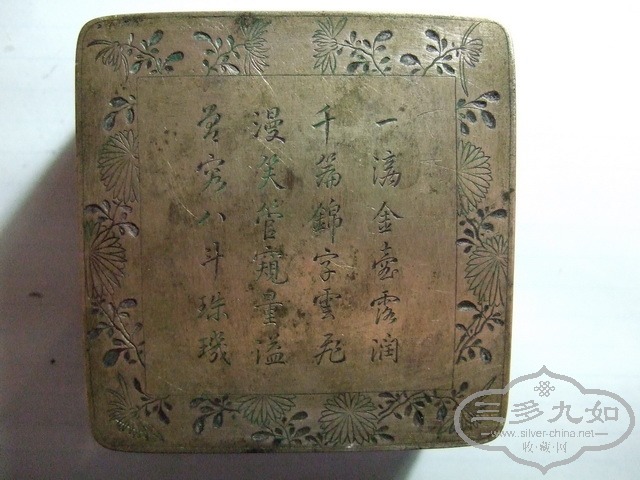 一滴金壺露潤
千篇錦字雲飛
漫笑管窺量溢
曾容八斗珠璣
三多九如
www.silver-china.net
收·藏·网